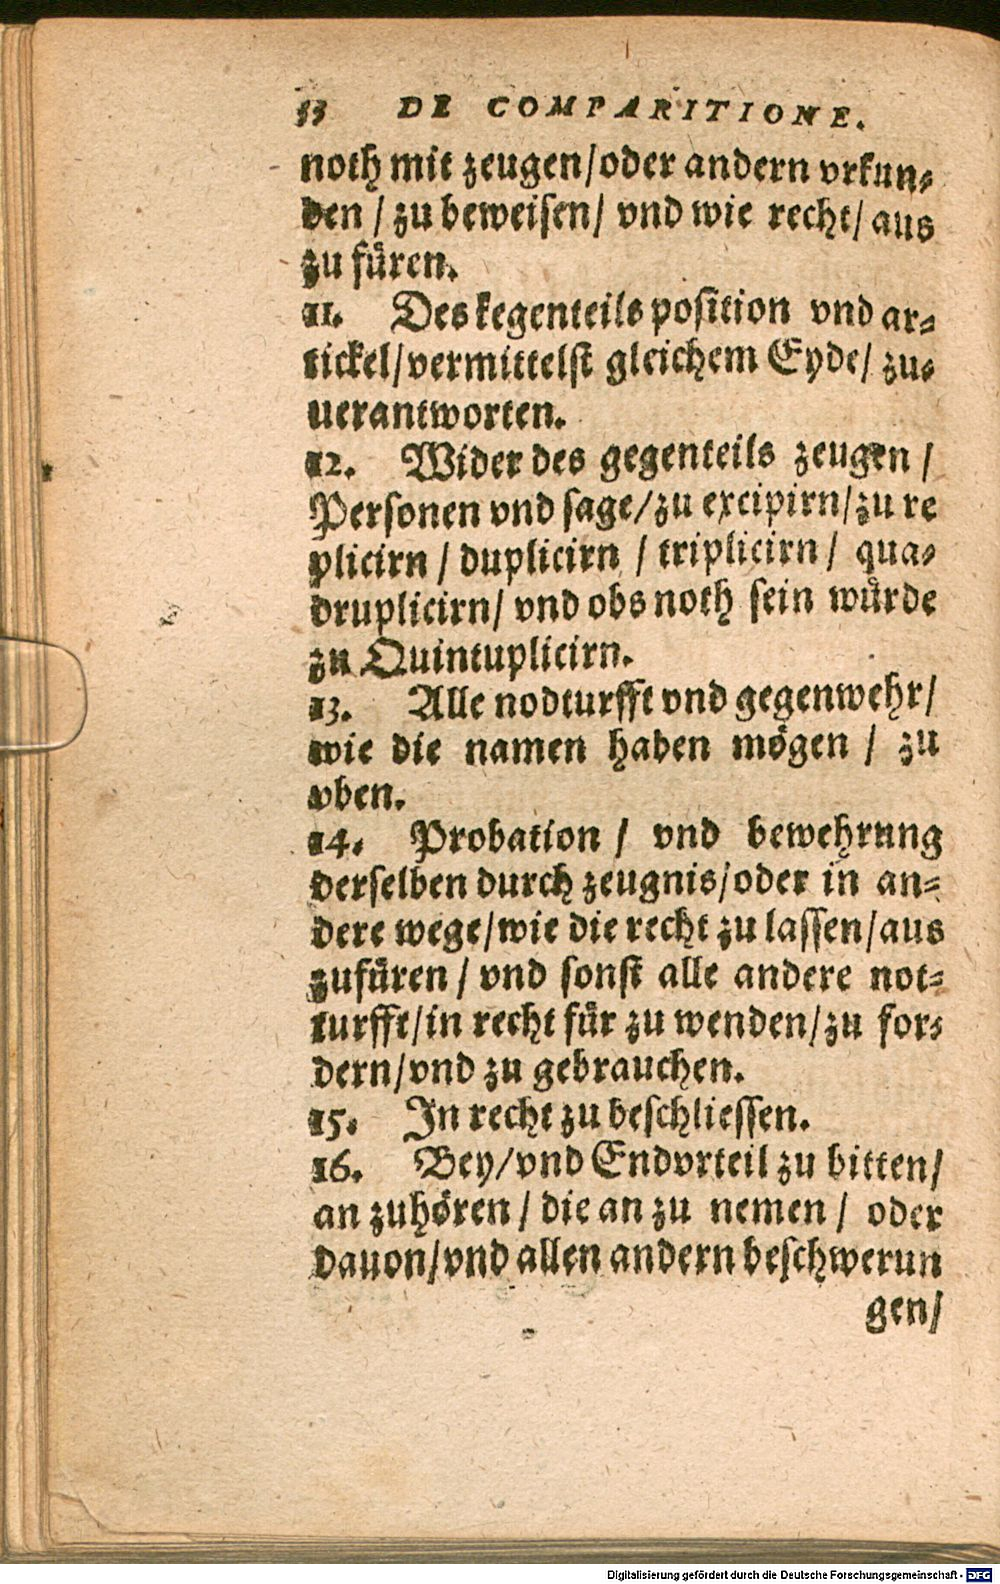 33 DE COMPARITIONE.
noth mit zeugen/oder andern vrkun⸗
den / zu beweisen/ vnd wie recht/ aus
zu fuͤren.
11. Des kegenteils position vnd ar⸗
tickel/vermittelst gleichem Eyde/ zu⸗
uerantworten.
12. Wider des gegenteils zeugen /
Personen vnd sage/zu excipirn/zu re
plicirn / duplicirn / triplicirn / qua⸗
druplicirn/ vnd obs noth sein wuͤrde
zu Quintuplicirn.
13. Alle nodturfft vnd gegenwehr/
wie die namen haben moͤgen / zu
vben.
14. Probation / vnd bewehrung
derselben durch zeugnis/oder in an⸗
dere wege/wie die recht zu lassen/aus
zufuͤren / vnd sonst alle andere not⸗
turfft/in recht fuͤr zu wenden/zu for⸗
dern/vnd zu gebrauchen.
15. In recht zu beschliessen.
16. Bey/vnd Endvrteil zu bitten/
an zuhoͤren / die an zu nemen / oder
dauon/vnd allen andern beschwerun
gen/
Digitalisierung gefördert durch die Deutsche Forschungsgemeinschaft - DFG